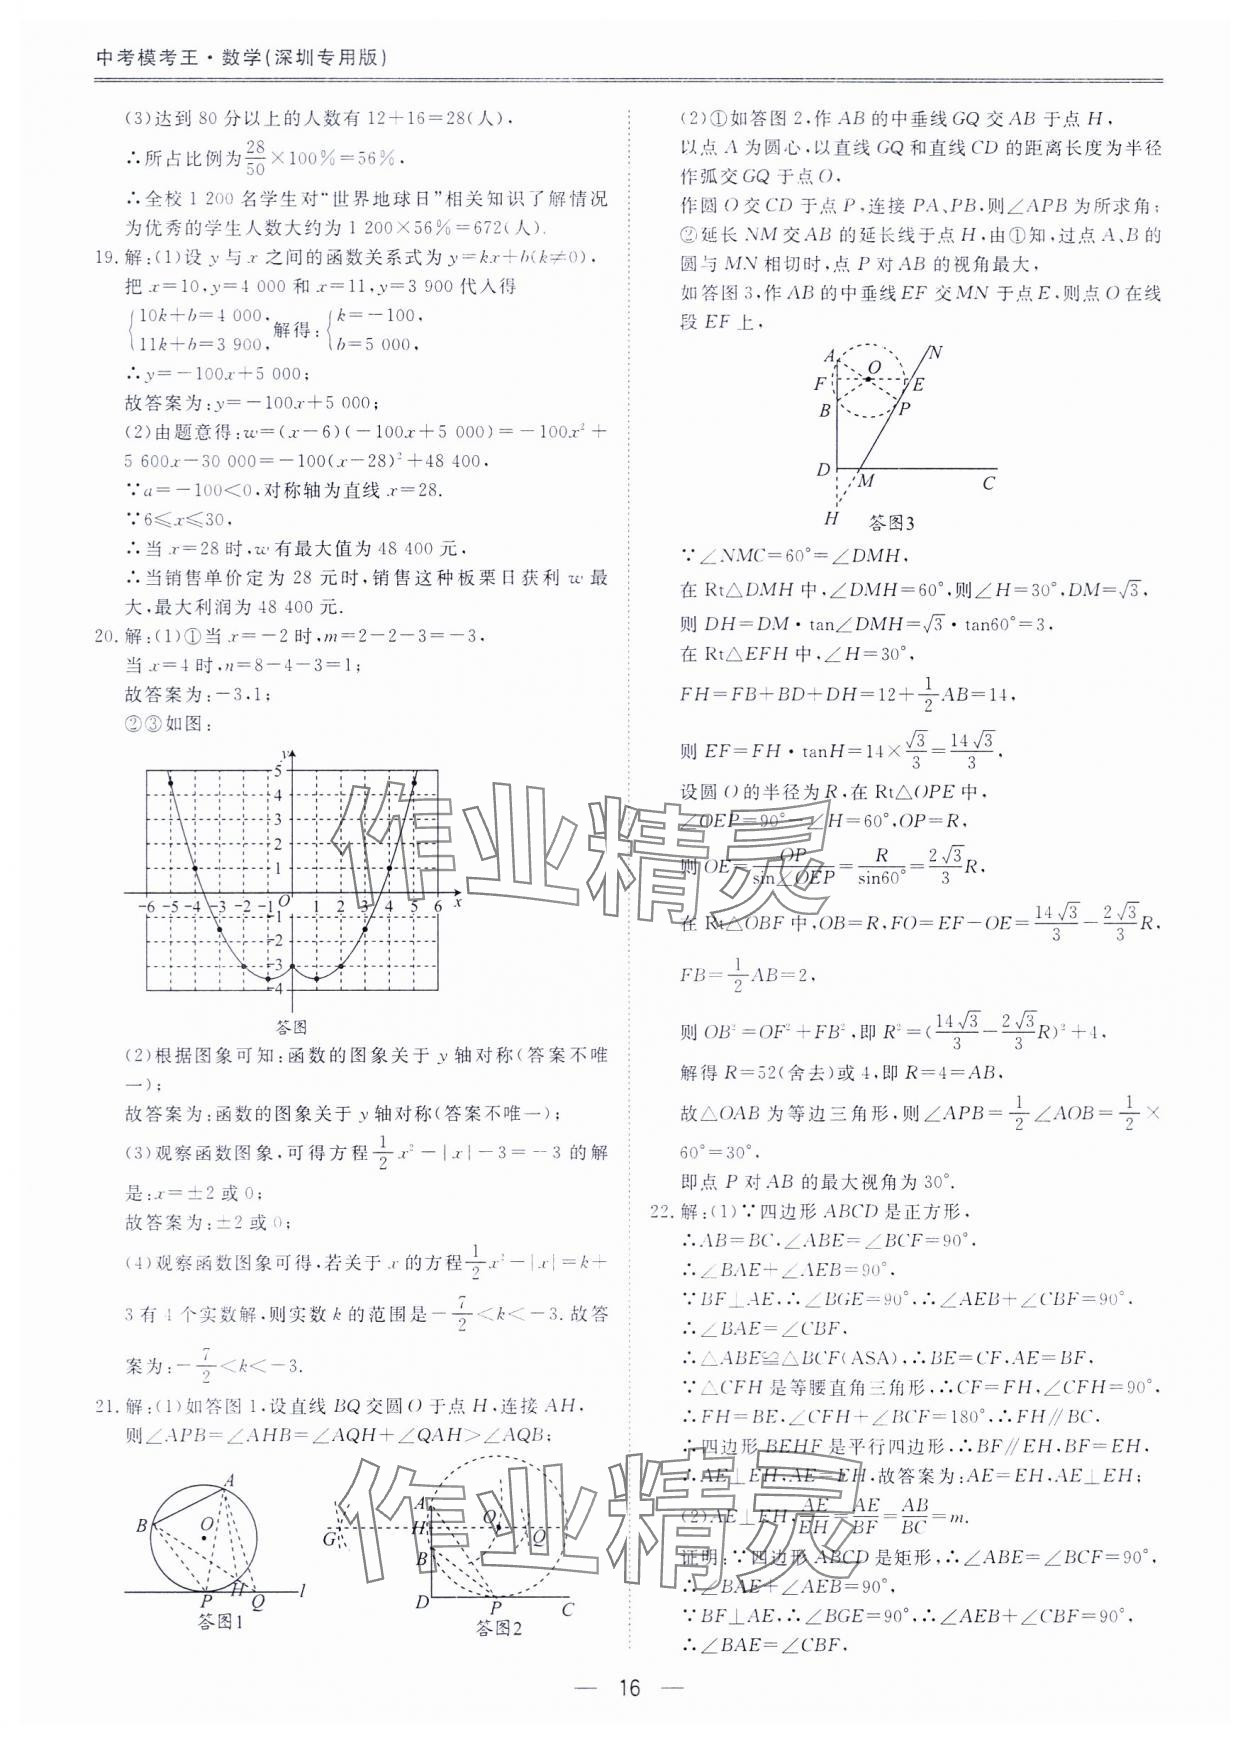 中考模考王·数学(深圳专用版)
(3)达到 80 分以上的人数有 12+16=28(人),
∴所占比例为28/50×100%=56%,
∴全校 1 200 名学生对“世界地球日”相关知识了解情况
为优秀的学生人数大约为 1 200×56%=672(人).
19. 解:(1)设 y 与 x 之间的函数关系式为 y=kx+b(k≠0),
把 x=10,y=4 000 和 x=11,y=3 900 代入得
{10k+b=4 000, 11k+b=3 900, 解得:{k=-100, b=5 000,
∴y=-100x+5 000;
故答案为:y=-100x+5 000;
(2)由题意得:w=(x-6)(-100x+5 000)=-100x²+
5 600x-30 000=-100(x-28)²+48 400,
∵a=-100<0,对称轴为直线 x=28.
∵6≤x≤30,
∴当 x=28 时,w 有最大值为 48 400 元,
∴当销售单价定为 28 元时,销售这种板栗日获利 w 最
大,最大利润为 48 400 元.
20. 解:(1)①当 x=-2 时,m=2-2-3=-3,
当 x=4 时,n=8-4-3=1;
故答案为:-3,1;
②③如图:
y
5
4
3
2
1
-6 -5 -4 -3 -2 -1 O 1 2 3 4 5 6 x
-1
-2
-3
-4
答图
(2)根据图象可知:函数的图象关于 y 轴对称(答案不唯
一);
故答案为:函数的图象关于 y 轴对称(答案不唯一);
(3)观察函数图象,可得方程1/2x²-|x|-3=-3 的解
是:x=±2 或 0;
故答案为:±2 或 0;
(4)观察函数图象可得,若关于 x 的方程1/2x²-|x|=k+
3 有 4 个实数解,则实数 k 的范围是-7/2<k<-3.故答
案为:-7/2<k<-3.
21. 解:(1)如答图 1,设直线 BQ 交圆 O 于点 H,连接 AH,
则∠APB=∠AHB=∠AQH+∠QAH>∠AQB;
A
B
O
P H Q l
答图1
A
G H O Q
B
D P C
答图2
(2)①如答图 2,作 AB 的中垂线 GQ 交 AB 于点 H,
以点 A 为圆心,以直线 GQ 和直线 CD 的距离长度为半径
作弧交 GQ 于点 O,
作圆 O 交 CD 于点 P,连接 PA、PB,则∠APB 为所求角;
②延长 NM 交 AB 的延长线于点 H,由①知,过点 A、B 的
圆与 MN 相切时,点 P 对 AB 的视角最大,
如答图 3,作 AB 的中垂线 EF 交 MN 于点 E,则点 O 在线
段 EF 上,
A N
O
F E
B P
D M C
H
答图3
∵∠NMC=60°=∠DMH,
在 Rt△DMH 中,∠DMH=60°,则∠H=30°,DM=√3,
则 DH=DM·tan∠DMH=√3·tan60°=3,
在 Rt△EFH 中,∠H=30°,
FH=FB+BD+DH=12+1/2AB=14,
则 EF=FH·tanH=14×√3/3=14√3/3,
设圆 O 的半径为 R,在 Rt△OPE 中,
∠OEP=90°-∠H=60°,OP=R,
则 OE=OP/sin∠OEP=R/sin60°=2√3/3R,
在 Rt△OBF 中,OB=R,FO=EF-OE=14√3/3-2√3/3R,
FB=1/2AB=2,
则 OB²=OF²+FB²,即 R²=(14√3/3-2√3/3R)²+4,
解得 R=52(舍去)或 4,即 R=4=AB,
故△OAB 为等边三角形,则∠APB=1/2∠AOB=1/2×
60°=30°.
即点 P 对 AB 的最大视角为 30°.
22. 解:(1)∵四边形 ABCD 是正方形,
∴AB=BC,∠ABE=∠BCF=90°,
∴∠BAE+∠AEB=90°,
∵BF⊥AE,∴∠BGE=90°,∴∠AEB+∠CBF=90°,
∴∠BAE=∠CBF,
∴△ABE≌△BCF(ASA),∴BE=CF,AE=BF,
∵△CFH 是等腰直角三角形,∴CF=FH,∠CFH=90°,
∴FH=BE,∠CFH+∠BCF=180°,∴FH∥BC,
∴四边形 BEHF 是平行四边形,∴BF∥EH,BF=EH,
∴AE⊥EH,AE=EH,故答案为:AE=EH,AE⊥EH;
(2)AE⊥EH,AE/EH=AE/BF=AB/BC=m.
证明:∵四边形 ABCD 是矩形,∴∠ABE=∠BCF=90°,
∴∠BAE+∠AEB=90°,
∵BF⊥AE,∴∠BGE=90°,∴∠AEB+∠CBF=90°,
∴∠BAE=∠CBF,
作业精灵
作业精灵
— 16 —